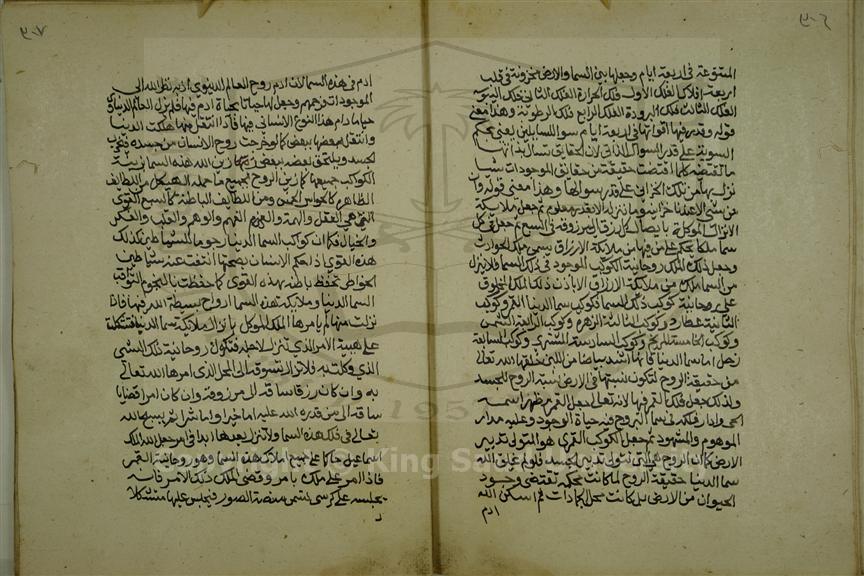 المتنوعة في اربعة ايام وجعلها بين السما والارض مخزونة في قلب
اربعة افلاك الفلك الاول فلك الحرارة الفلك الثاني فلك اليبوسة
الفلك الثالث فلك البرودة الفلك الرابع فلك الرطوبة وهذا معنى
قوله وقدر فيها اقواتها في اربعة ايام سوا للسايلين يعني بحكم
السوية على قدر السوال الذاتي لان الحقايق تسال بذاتها
ما تقتضيه كلما اقتضت حقيقة من حقايق الموجودات شيا
نزل لها من تلك الخزاين على قدر سوالها وهذا معنى قوله وان
من شي الا عندنا خزاينه وما ننزله الا بقدر معلوم ثم جعل ملايكة
الانزال الموكلة بايصال كل رزق الى مرزوقه في السبع ثم جعل في كل
سما ملكا يحكم على من فيها من ملايكة الارزاق يسمى ملك الحوادث
وجعل ذلك الملك روحانية الكوكب الموجود في تلك السما فلا ينزل
من السما ملك من ملايكة الارزاق الا باذن ذلك الملك المخلوق
على روحانية كوكب تلك السما فكوكب سما الدنيا القمر وكوكب
الثانية عطارد وكوكب الثالثة الزهره وكوكب الرابعة الشمس
وكوكب الخامسة المريخ وكوكب السادسة المشتري وكوكب السابعة
زحل اما سما الدنيا فانها اشد بياضا من اللبن خلقها الله تعالى
من حقيقة الروح لتكون نسبتها في الارض نسبة الروح للجسد
ولذلك جعل فلك القمر فيها لانه تعالى جعل القمر مظهر اسمه
الحي وادار فلكه في سما الروح فبه حياة الوجود وعليه مدار
الموهوم والمشهود ثم جعل الكوكب القمري هو المتولي تدبير
الارض كما ان الروح هي التي تتولى تدبير الجسد فلو لم يخلق الله
سما الدنيا حقيقة الروح لما كانت الحكمة تقتضي وجود
الحيوان من الارض بل كانت محل الجمادات ثم اسكن الله
ادم
ادم في هذه السما لان ادم روح العالم الدنيوي اذ به نظر الله الى
الموجودات فرحمهم وجعل لها حياة بحياة ادم فيها فلم يزل العالم الدنياوي
حيا ما دام هذا النوع الانساني فيها فاذا انتقل منها هلكت الدنيا
وانتقل بعضها ببعض كما لو خرجت روح الانسان من جسده فيخرب
الجسد ويلتحق بعضه ببعض زين الله هذه السما بزينة
الكواكب جميعها كما زين الروح بجميع ما حمله الهيكل من اللطايف
الظاهره كالحواس الخمس ومن اللطايف الباطنة كالسبع القوى
التي هي العقل والهمة والفهم والوهم والقلب والفكر
والخيال فكما ان كواكب السما الدنيا رجوما للشياطين كذلك
هذه القوي اذا حكم الانسان بصحتها انتفت عنه شياطين
الخواطر فحفظ باطنه بهذه القوى كما حفظت بالنجوم الثواقب
السما الدنيا وملايكة هذه السما ارواح بسيطة الله فيها فاذا
نزلت منها لم يامرها الملك الموكل بانزال ملايكة سما الدنيا فتشكلة
على هيبة الامر الذي تنزل لاجله فتكون روحانية ذلك الشي
الذي وكلت به فلا تزال تسوقه الى المحل الذي امرها الله تعالى
به وان كان رزقا ساقته الى مرزوقه وان كان امرا قضايا
ساقته الى من قدره الله عليه اما خيرا واما شرا ثم يسبح الله
تعالى في فلك هذه السما ولا تنزل بعدها ابدا في امر جعل الله الملك
اسماعيل حاكما على جميع املاك هذه السما وهو روحانية القمر
فاذا امر على ملك بامر وقضى الملك ذلك الامر فانه
يجلسه على كرسي يسمى منصة الصور فيجلس عليها متشكلا